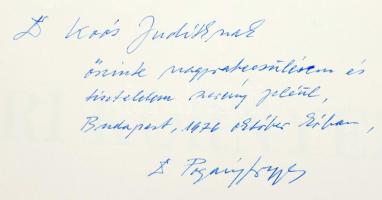 Dr Koós Juditnak
őszinte nagyrabecsülésem és
tiszteletem szerény jeléül,
Budapest, 1976 október havában,
Dr Pogány Frigyes